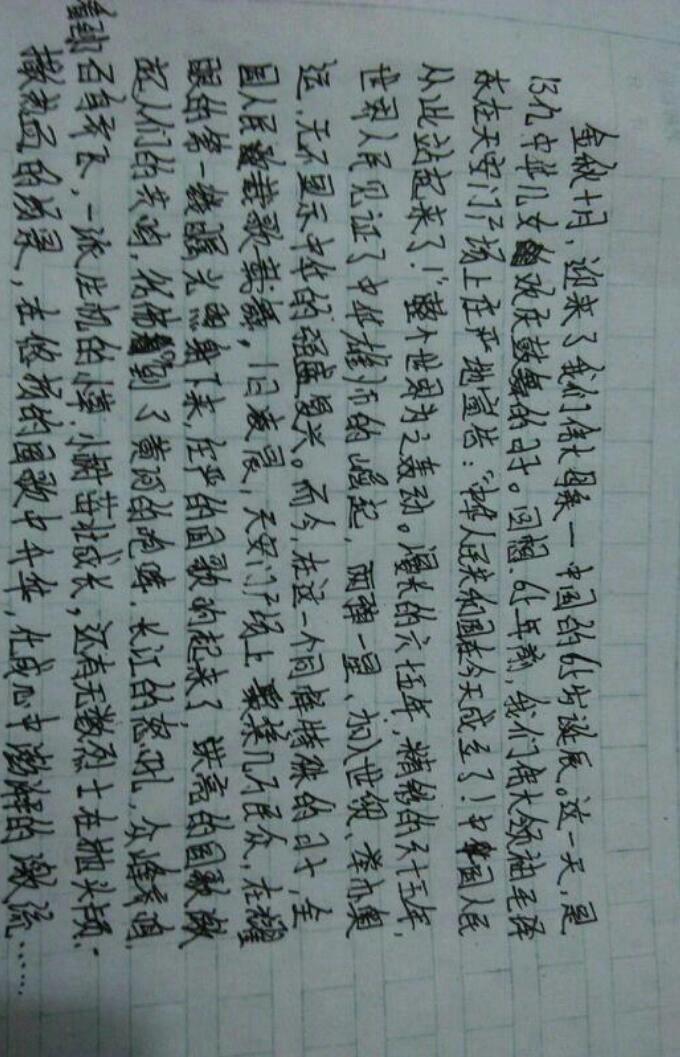 金秋十月，迎来了我们伟大母亲一中国的65岁诞辰。这一天，是
13亿中华儿女欢天鼓舞的日子。回帼.65年前，我们伟大领袖毛泽
东在天安门广场上庄严地宣告："中华人民共和国在今天成立了！中国人民
从此站起来了！"整个世界为之轰动。漫长的六十五年，精彩的六十五年，
世界人民见证了中华雄师的崛起，两弹一星、加入世贸、举办奥
运，无不显示中华的强盛复兴。而今，在这一个同样特殊的日子，全
国人民载歌载舞，旧凌晨，天安门广场上聚集几万民众，在耀
眼的第一缕曙光照射下来，庄严的国歌响起来了，洪亮的国歌激
起人们的共鸣，仿佛到了黄河的咆哮.长江的怒吼，众
百舟齐飞，一派生机的小草.小树茁壮成长，还有无数烈士在抛头颅.
撒热血的场景，在悠扬的国歌中升华，化成心中澎湃的激流……